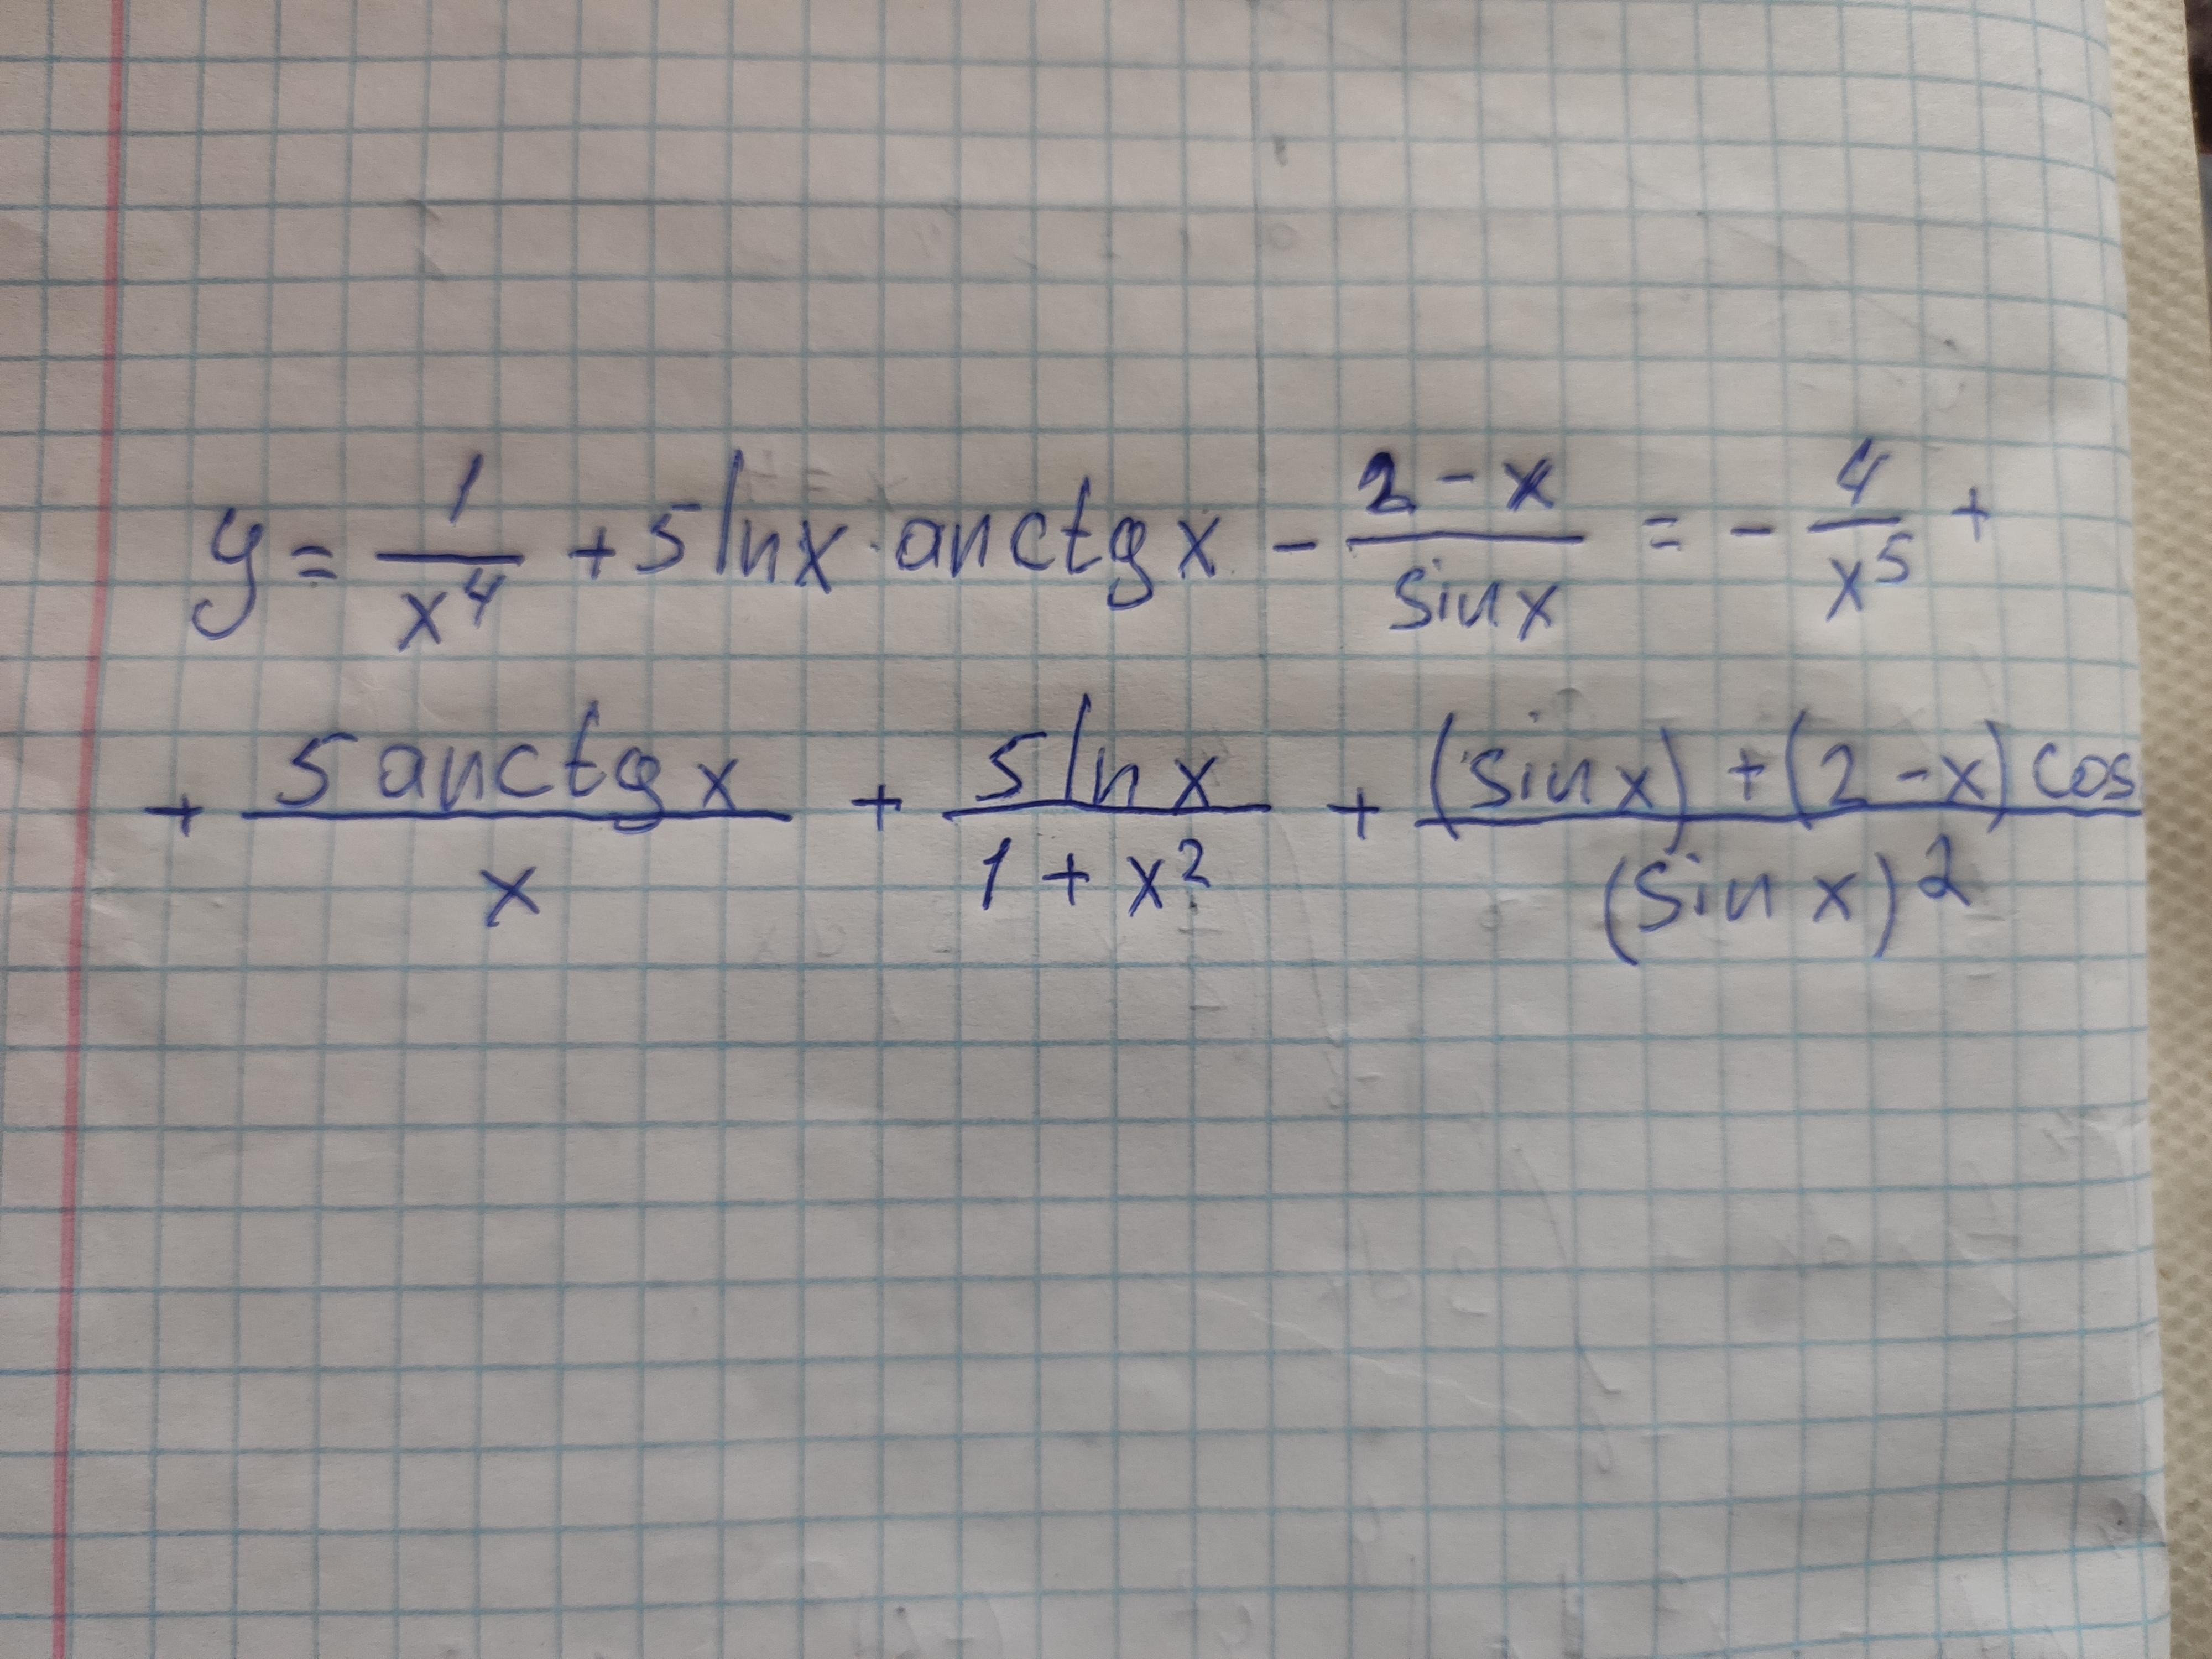 y = 1/x⁴ + 5 ln x · arctg x - (2 - x)/(sin x) = - 4/x⁵ +
+ (5 arctg x)/x + (5 ln x)/(1 + x²) + ((sin x) + (2 - x) cos)/((sin x)²)